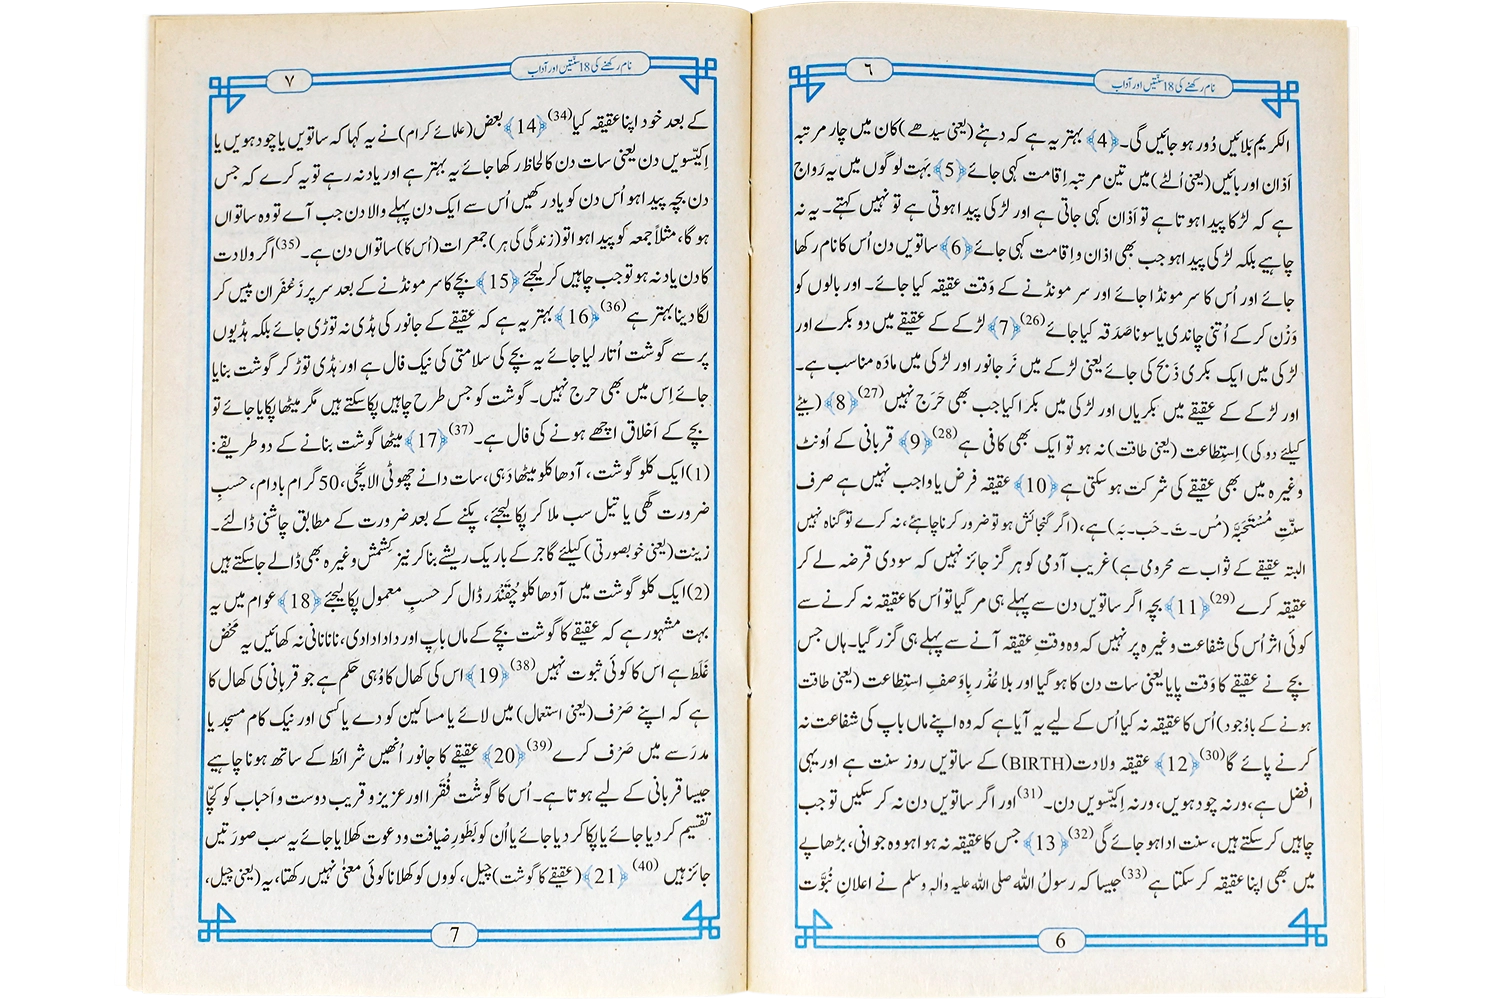 ٦
نام رکھنے کی 18 سنتیں اور آداب
الکریم بَلائیں دُور ہو جائیں گی۔﴿4﴾ بہتر یہ ہے کہ دہنے (یعنی سیدھے) کان میں چار مرتبہ
اَذان اور بائیں (یعنی اُلٹے) میں تین مرتبہ اِقامت کہی جائے ﴿5﴾ بہَت لوگوں میں یہ رَواج
ہے کہ لڑکا پیدا ہوتا ہے تو اَذان کہی جاتی ہے اور لڑکی پیدا ہوتی ہے تو نہیں کہتے۔ یہ نہ
چاہیے بلکہ لڑکی پیدا ہو جب بھی اذان و اِقامت کہی جائے ﴿6﴾ ساتویں دن اُس کا نام رکھا
جائے اور اُس کا سر مونڈا جائے اور سر مونڈنے کے وَقت عقیقہ کیا جائے۔ اور بالوں کو
وَزْن کر کے اُتنی چاندی یا سونا صَدَقہ کیا جائے (26) ﴿7﴾ لڑکے کے عقیقے میں دو بکرے اور
لڑکی میں ایک بکری ذَبح کی جائے یعنی لڑکے میں نَر جانور اور لڑکی میں مادَہ مناسب ہے۔
اور لڑکے کے عقیقے میں بکریاں اور لڑکی میں بکرا کیا جب بھی حَرَج نہیں (27) ﴿8﴾ (بیٹے
کیلئے دو کی) اِستِطاعت (یعنی طاقت) نہ ہو تو ایک بھی کافی ہے (28) ﴿9﴾ قربانی کے اُونٹ
وغیرہ میں بھی عقیقے کی شرکت ہو سکتی ہے ﴿10﴾ عقیقہ فرض یا واجب نہیں ہے صرف
سنّتِ مُسْتَحَبَّہ (مُس۔تَ۔حَب۔بَہ) ہے، (اگر گنجائش ہو تو ضرور کرنا چاہئے، نہ کرے تو گناہ نہیں
البتہ عقیقے کے ثواب سے محرومی ہے) غریب آدمی کو ہر گز جائز نہیں کہ سودی قرضہ لے کر
عقیقہ کرے (29) ﴿11﴾ بچہ اگر ساتویں دن سے پہلے ہی مر گیا تو اُس کا عقیقہ نہ کرنے سے
کوئی اثر اُس کی شفاعت وغیرہ پر نہیں کہ وہ وقتِ عقیقہ آنے سے پہلے ہی گزر گیا۔ ہاں جس
بچے نے عقیقے کا وَقت پایا یعنی سات دن کا ہو گیا اور بلا عُذْر باوَصفِ اِستِطاعت (یعنی طاقت
ہونے کے باوُجود) اُس کا عقیقہ نہ کیا اُس کے لیے یہ آیا ہے کہ وہ اپنے ماں باپ کی شفاعت نہ
کرنے پائے گا (30) ﴿12﴾ عقیقہ ولادت (BIRTH) کے ساتویں روز سنت ہے اور یہی
افضل ہے، ورنہ چودہویں، ورنہ اِکیّسویں دن۔(31) اور اگر ساتویں دن نہ کر سکیں تو جب
چاہیں کر سکتے ہیں، سنت ادا ہو جائے گی (32) ﴿13﴾ جس کا عقیقہ نہ ہوا ہو وہ جوانی، بڑھاپے
میں بھی اپنا عقیقہ کر سکتا ہے (33) جیسا کہ رسولُ اللہ صلی اللہ علیہ واٰلہٖ وسلم نے اعلانِ نُبُوَّت
6
٧
نام رکھنے کی 18 سنتیں اور آداب
کے بعد خود اپنا عقیقہ کیا (34) ﴿14﴾ بعض (علمائے کرام) نے یہ کہا کہ ساتویں یا چودہویں یا
اِکیّسویں دن یعنی سات دن کا لحاظ رکھا جائے یہ بہتر ہے اور یاد نہ رہے تو یہ کرے کہ جس
دن بچہ پیدا ہو اُس دن کو یاد رکھیں اُس سے ایک دن پہلے والا دن جب آئے تو وہ ساتواں
ہو گا، مثلاً جمعہ کو پیدا ہوا تو (زندگی کی ہر) جمعرات (اُس کا) ساتواں دن ہے۔(35) اگر ولادت
کا دن یاد نہ ہو تو جب چاہیں کر لیجئے ﴿15﴾ بچے کا سر مونڈنے کے بعد سر پر زَعْفَران پیس کر
لگا دینا بہتر ہے (36) ﴿16﴾ بہتر یہ ہے کہ عقیقے کے جانور کی ہڈی نہ توڑی جائے بلکہ ہڈیوں
پر سے گوشت اُتار لیا جائے یہ بچے کی سلامتی کی نیک فال ہے اور ہڈی توڑ کر گوشت بنایا
جائے اِس میں بھی حرج نہیں۔ گوشت کو جس طرح چاہیں پکا سکتے ہیں مگر میٹھا پکایا جائے تو
بچے کے اَخلاق اچھے ہونے کی فال ہے۔(37) ﴿17﴾ میٹھا گوشت بنانے کے دو طریقے:
(1) ایک کلو گوشت، آدھا کلو میٹھا دَہی، سات دانے چھوٹی الائچی، 50 گرام بادام، حسبِ
ضرورت گھی یا تیل سب ملا کر پکا لیجئے، پکنے کے بعد ضرورت کے مطابق چاشنی ڈالئے۔
زینت (یعنی خوبصورتی) کیلئے گاجر کے باریک ریشے بنا کر نیز کِشمش وغیرہ بھی ڈالے جا سکتے ہیں
(2) ایک کلو گوشت میں آدھا کلو چُقَنْدَر ڈال کر حسبِ معمول پکا لیجئے ﴿18﴾ عوام میں یہ
بہت مشہور ہے کہ عقیقے کا گوشت بچے کے ماں باپ اور دادا دادی، نانا نانی نہ کھائیں یہ مَحْض
غَلَط ہے اس کا کوئی ثبوت نہیں (38) ﴿19﴾ اس کی کھال کا وُہی حکم ہے جو قربانی کی کھال کا
ہے کہ اپنے صَرْف (یعنی استعمال) میں لائے یا مساکین کو دے یا کسی اور نیک کام مسجد یا
مدرَسے میں صَرْف کرے (39) ﴿20﴾ عقیقے کا جانور اُنھیں شرائط کے ساتھ ہونا چاہیے
جیسا قربانی کے لیے ہوتا ہے۔ اُس کا گوشْت فُقَرا اور عزیز و قریب دوست و اَحباب کو کچّا
تقسیم کر دیا جائے یا پکا کر دیا جائے یا اُن کو بَطَورِ ضیافت و دعوت کھلایا جائے یہ سب صورَتیں
جائز ہیں (40) ﴿21﴾ (عقیقے کا گوشت) چیل، کووں کو کھلانا کوئی معنیٰ نہیں رکھتا، یہ (یعنی چیل،
7